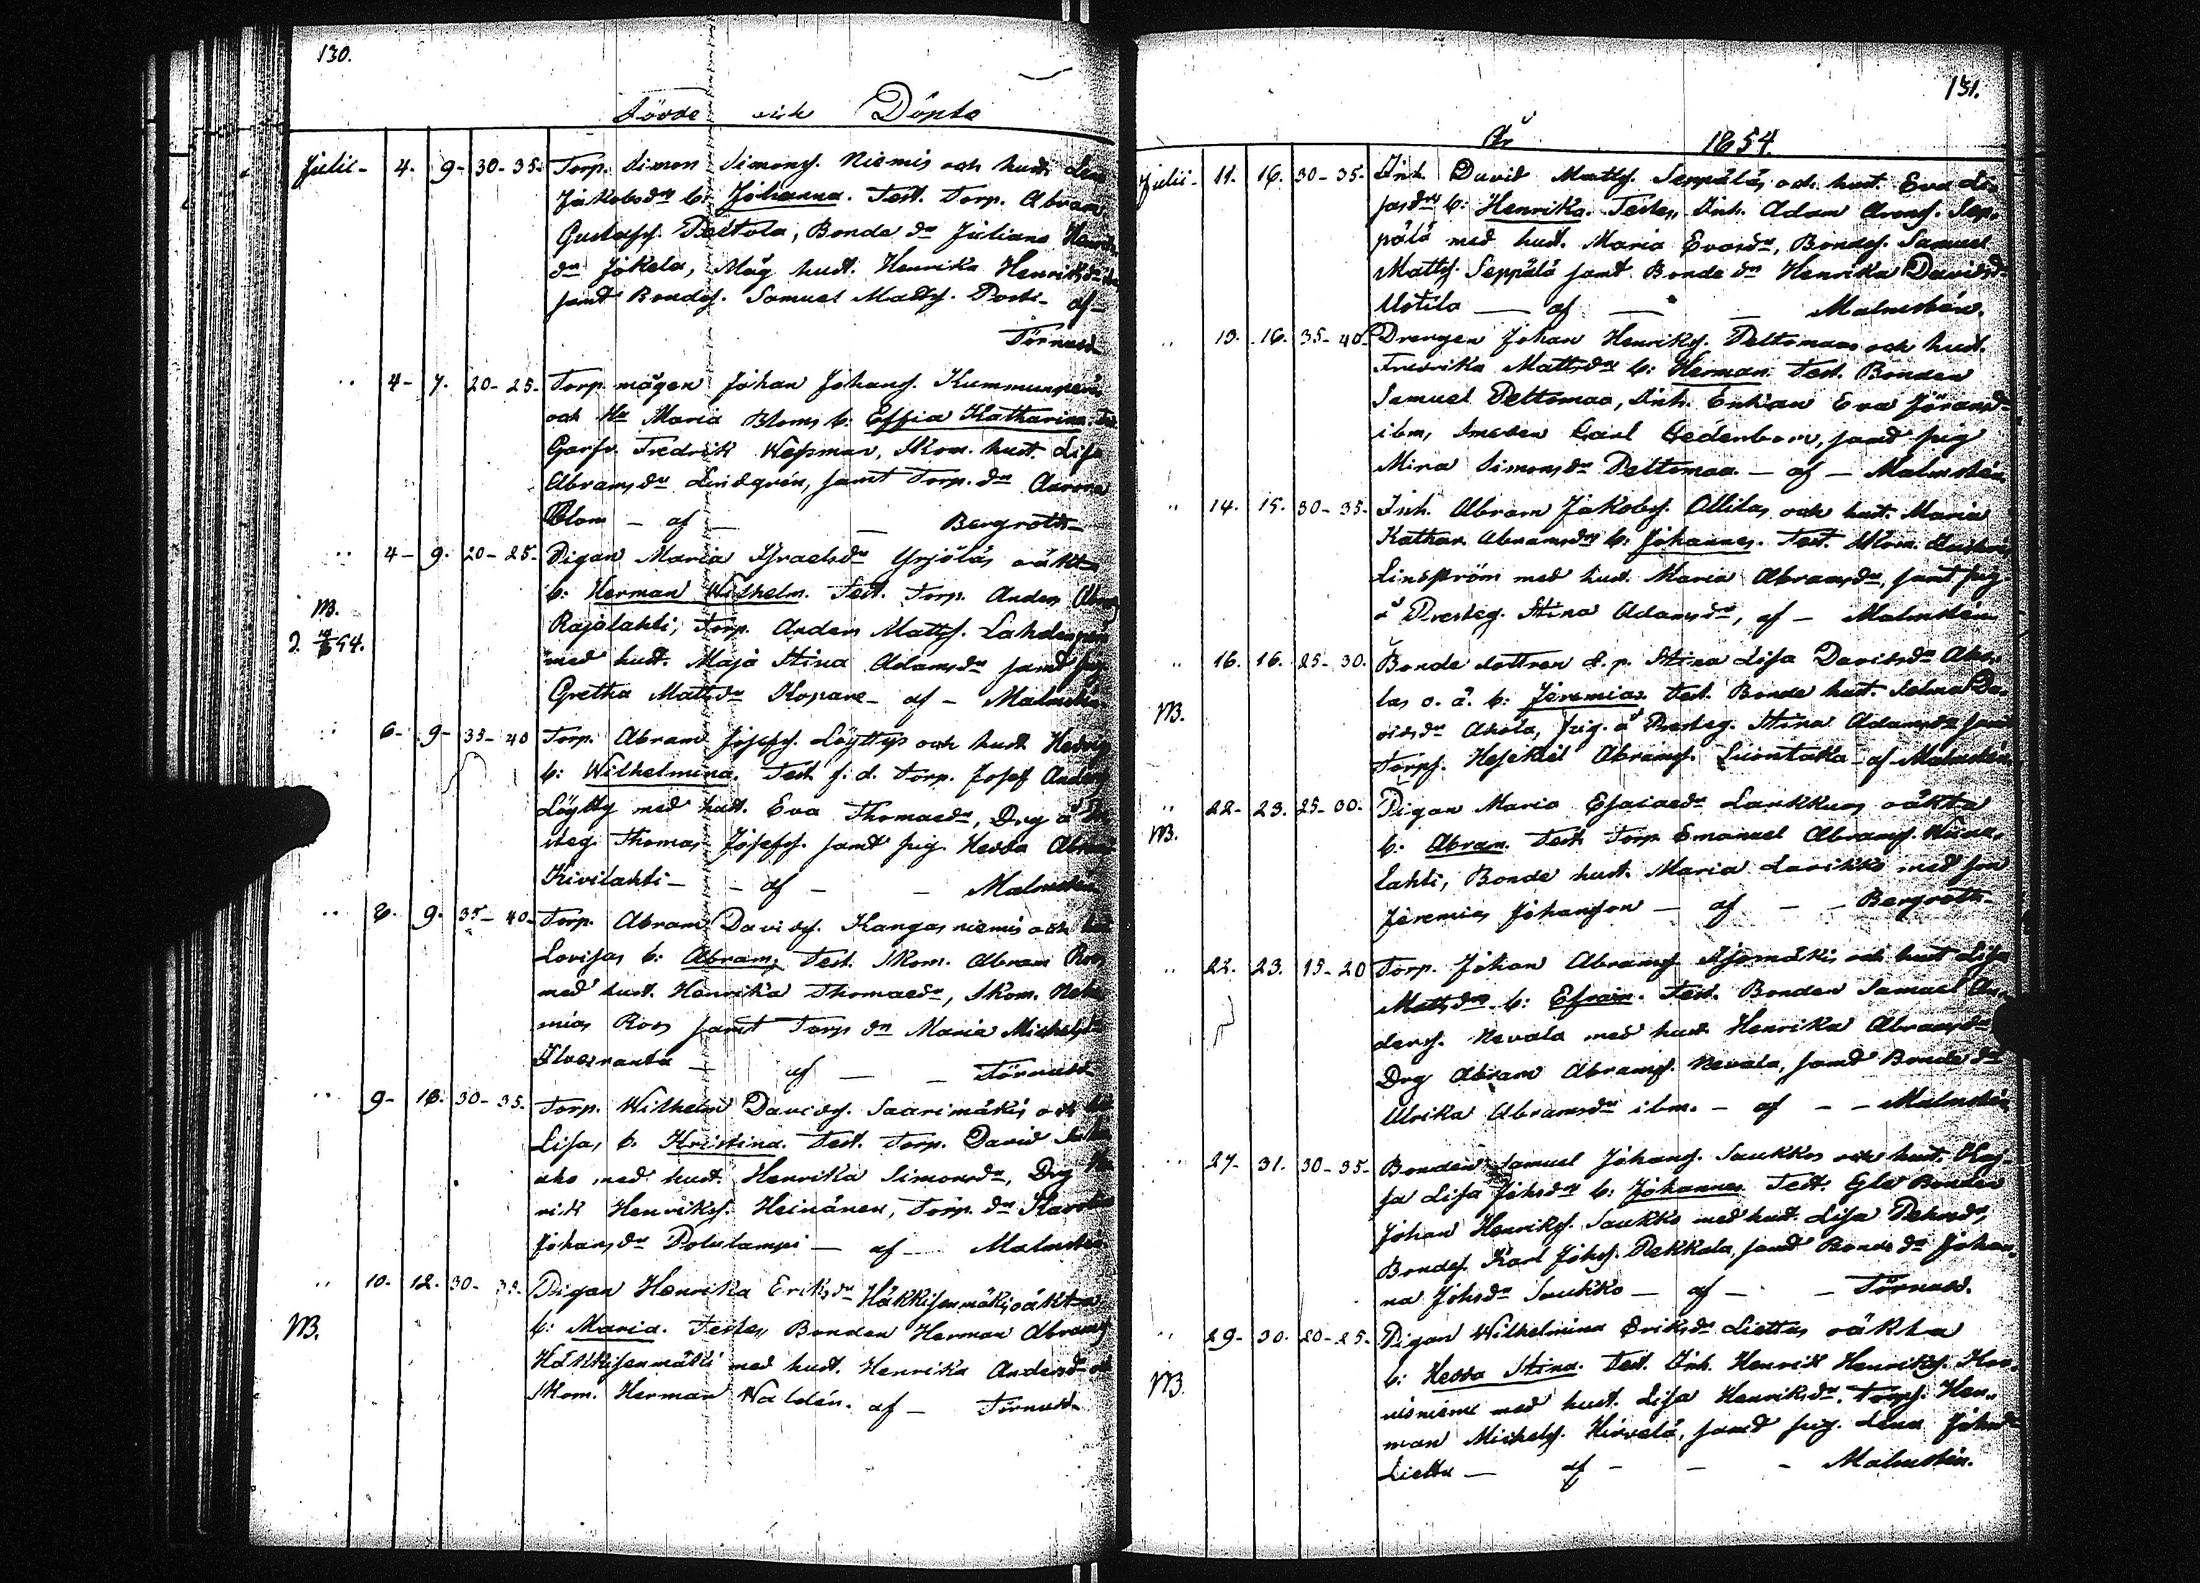 130.
Födde och Döpte
Julii - 4. 9- 30-35. Torp. Simon Simonss. Niemis och hust. Lena
Jakobsdrs b: Johanna. Test. Torp. Abram
Gustafss. Peltola, Bonde dr Juliana Henriks
dr Jokela, Måg hust. Henrika Henriksdr
samt Bondes. Samuel Matss. Porti - af -
Törnudd
" 4- 7. 20-25. Torp. mågen Johan Johanss. Kummunperäs
och Ma Maria Bloms b: Effia Katharina. Test.
Garfv. Fredrik Wessman, Skom. hust. Lisa
Abramsdr Lindgrén, samt Torp. dr Aurora
Blom - af - - Bergroth -
" 4- 9. 20-25. Pigan Maria Israelsdr Yrjöläs oäkta
NB. b: Herman Wilhelm. Test. Torp. Anders
Rajalahti, Torp. Anders Matss. Lahdenperä
D. 54. med hust. Maja Stina Adamsdr samt pig.
Gretha Mattsdr Kopare - af - Malmstén
" 6- 9- 35-40 Torp. Abram Josefss. Löyttys och hust. Hedvigs
b: Wilhelmina. Test. f. d. Torp. Josef Anderss.
Löytty med hust. Eva Thomasdr, Drg å
steg. Thomas Josefss. samt pig. Hedda
Kivilahti - - af - - Malmstén
" 8. 9. 35-40. Torp. Abram Davidss. Kangasniemis och hust.
Lovisas b: Abram. Test. Skom. Abram Roos
med hust. Henrika Thomasdr, Skom. Nehe
mias Roos samt Torp. dr Maria Michelsdr
Ilvesranta - af - - Törnudd
" 9- 16. 30-35. Torp. Wilhelm Davidss. Saarimäkis och hust.
Lisas b. Kristina. Test. Torp. David
aho med hust. Henrika Simonsdr, Drg Hen
rik Henrikss. Heinänen, Torp. dr Karolina
Johansdr Polulampi - af - Malmstén
" 10. 12. 30-35. Pigan Henrika Eriksdr Häkkisenmäkis oäkta
NB. b: Maria. Testes Bonden Herman Abramss.
Häkkisenmäki med hust. Henrika Andersdr och
Skom. Herman Waldén. af - Törnudd -
131.
År 1854.
Julii - 11. 16. 30-35. Inh. David Matss. Seppäläs och hust. Eva
sasdrs b: Henrika. Testes Inh. Adam Arons. Sep-
pälä med hust. Maria Evasdr, Bondes. Samuel
Matss. Seppälä samt Bonde dr Henrika Davidsdr
Uotila - af - - Malmstén.
" 13. 16. 35-40. Drengen Johan Henrikss. Peltomaas och hust.
Fredrika Mattsdrs b: Herman. Test. Bonden
Samuel Peltomaa, Inh. Enkan Eva Göransdr
ibm, Smeden Carl Cedenborn, samt pig
Mina Simonsdr Peltomaa - af - Malmstén
" 14. 15. 30-35. Inh. Abram Jakobss. Ollilas och hust. Maria
Kathar. Abramsdrs b: Johannes. Test. Skom.
Lindström med hust. Maria Abramsdr, samt pig
å Presteg. Stina Adamsdr, af - Malmstén
" 16. 16. 25-30. Bonde dottren d. p. Stina Lisa Davidsdr Aho-
NB. las o. ä. b: Jeremias. Test. Bonde hust. Selma Da-
vidsdr Ahola, pig. å Presteg. Stina Adamsdr samt
Torps. Hesekiel Abramss. Luontaka af Malmstén
" 22. 23. 25-30. Pigan Maria Esaiasdr Laukkus oäkta
NB. b. Abram. Test. Torp. Emanuel Abramss.
lahti, Bonde hust. Maria Larikko med son
Jeremias Johansson - af - - Bergroth -
" 22. 23. 15-20 Torp. Johan Abramss. Isomäkis och hust. Lisa
Mattsdrs b: Efraim. Test. Bonden Samuel An-
derss. Nevala med hust. Henrika Abramsdr
Drg Abram Abramss. Nevala, samt Bonde dr
Ulrika Abramsdr ibm. - af - - Malmstén
" 27. 31. 30-35. Bonden Samuel Johanss. Saukkos och hust. Kaj-
sa Lisa Johsdrs b: Johannes. Test. Gla Bonden
Johan Henrikss. Saukko med hust. Lisa
Bondes. Karl Johss. Pekkala, samt Bonde dr Johan-
na Johsdr Saukko - af - - Törnudd.
" 29- 30. 20-25. Pigan Wilhelmina Eriksdr Liettas oäkta
NB. b: Hedda Stina. Test. Inh. Henrik Henrikss. Hor-
nisniemi med hust. Lisa Henriksdr, Torps. Her-
man Michelss. Hirvelä, samt pig. Lena Johsdr
Lietta - af - - - Malmstén.